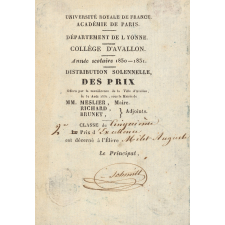 UNIVERSITÉ ROYALE DE FRANCE.
ACADÉMIE DE PARIS.
DÉPARTEMENT DE L'YONNE.
COLLÈGE D'AVALLON.
Année scolaire 1830 — 1831.
DISTRIBUTION SOLENNELLE,
DES PRIX
MM. MESLIER, Maire.
RICHARD,
BRUNET, } Adjoints.
CLASSE de Cinquième
2me Prix d'Excellence
est décerné à l'Élève Milot Auguste
Le Principal,